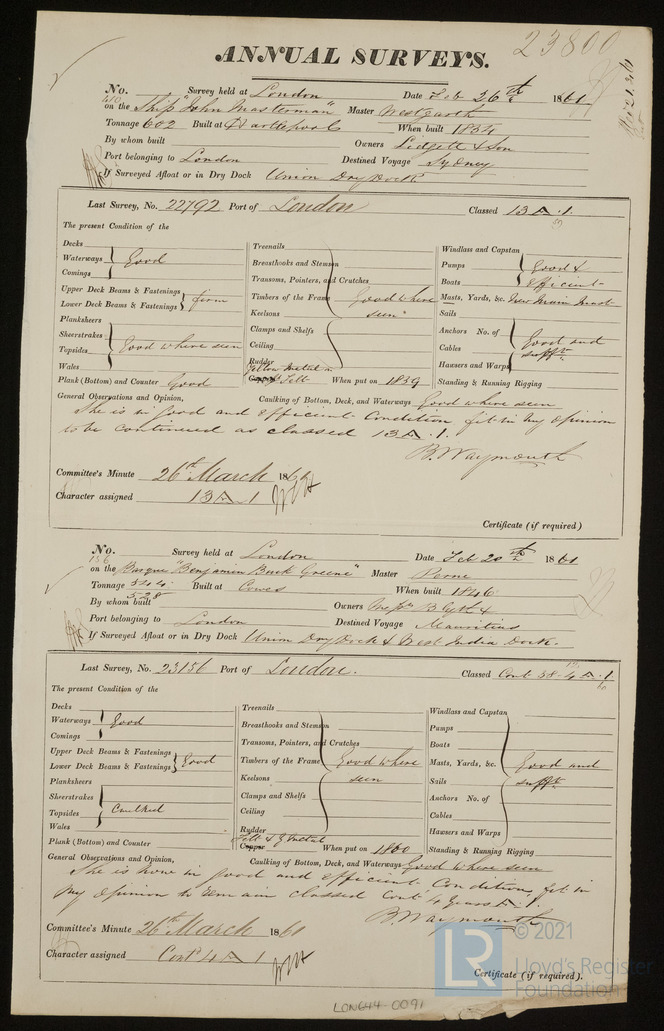 23800
ANNUAL SURVEYS.
No. Survey held at London Date Feb 26th 1861
on the Ship "John Masterman" Master Westgarth
Tonnage 602 Built at Hartlepool When built 1834
By whom built Owners Lidgett & Son
Port belonging to London Destined Voyage Sydney
If Surveyed Afloat or in Dry Dock Union Dry Dock
Last Survey, No. 22792 Port of London Classed 13 A .1.
The present Condition of the
Decks
Waterways
Comings
Good
Upper Deck Beams & Fastenings
Lower Deck Beams & Fastenings
firm
Planksheers
Sheerstrakes
Topsides
Wales
Good where seen
Plank (Bottom) and Counter Good
Treenails
Breasthooks and Stemson
Transoms, Pointers, and Crutches
Timbers of the Frame
Keelsons
Clamps and Shelfs
Ceiling
Rudder
Good where seen
Yellow Metal on
Copper Felt When put on 1839
Windlass and Capstan
Pumps
Boats
Good & Efficient
Masts, Yards, &c. New Main Mast
Sails
Anchors No. of
Cables
Hawsers and Warps
Good and sufft.
Standing & Running Rigging
General Observations and Opinion, Caulking of Bottom, Deck, and Waterways Good where seen
She is in good and Efficient Condition fit in my opinion
to be continued as classed 13 A .1.
B. Waymouth
Committee's Minute 26th March 1861
Character assigned 13 A 1
Certificate (if required)
No. Survey held at London Date Feb 20th 1861
156
on the Barque "Benjamin Buck Greene" Master
Tonnage 544 Built at Cowes When built 1846
528
By whom built Owners Messrs Blyth &
Port belonging to London Destined Voyage Mauritius
If Surveyed Afloat or in Dry Dock Union Dry Dock & West India Dock.
Last Survey, No. 23156 Port of London. Classed Cont 58-4 A .1
60
The present Condition of the
Decks
Waterways
Comings
Good
Upper Deck Beams & Fastenings
Lower Deck Beams & Fastenings
Good
Planksheers
Sheerstrakes
Topsides
Wales
Caulked
Plank (Bottom) and Counter
Treenails
Breasthooks and Stemson
Transoms, Pointers, and Crutches
Timbers of the Frame
Keelsons
Clamps and Shelfs
Ceiling
Rudder
Good where seen
Felt & Y Metal
Copper When put on 1860
Windlass and Capstan
Pumps
Boats
Masts, Yards, &c.
Sails
Anchors No. of
Cables
Hawsers and Warps
Good and sufft.
Standing & Running Rigging
General Observations and Opinion, Caulking of Bottom, Deck, and Waterways Good where seen
She is now in good and Efficient Condition, fit in
my opinion to remain classed Contd 4 years A .1.
B Waymouth
Committee's Minute 26th March 1861
Character assigned Contd 4 A 1
Certificate (if required).
LR
© 2021
Lloyd's Register
Foundation
LON644-0091